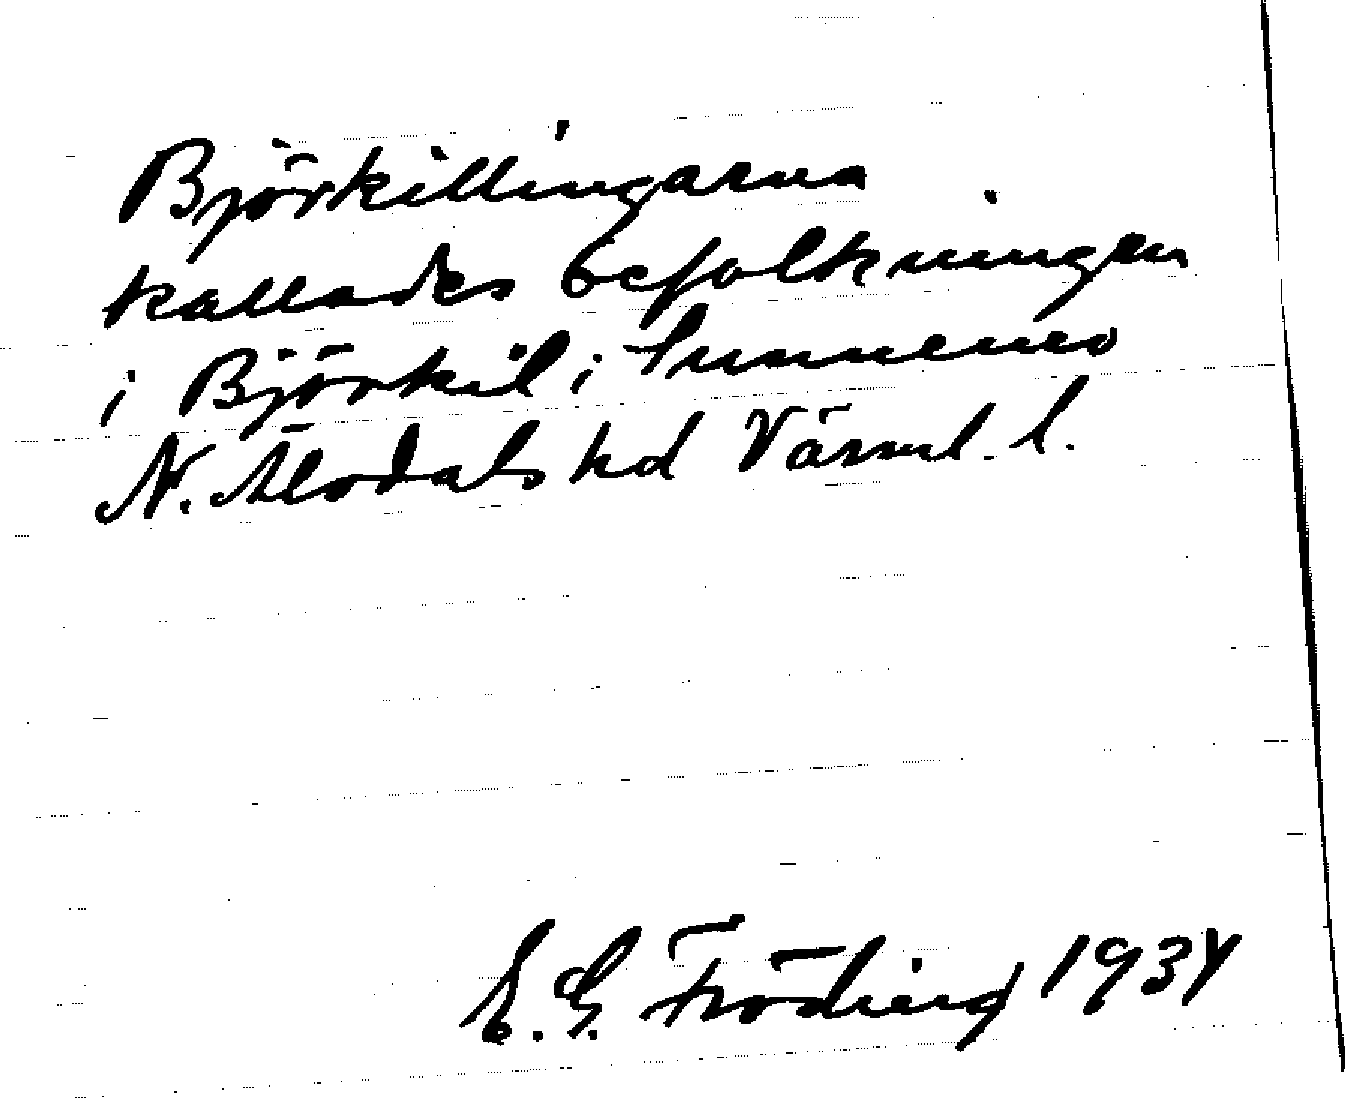 Björkillingarna
kallades befolkningen
i Björkil i Sunnemo
N. Älvdals hd Värml. l.
E. G. Fröberg 1934